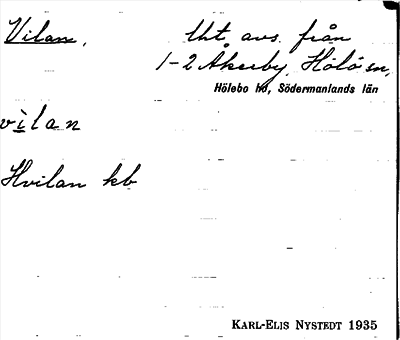 Vilan, lht. avs. från
1-2 Åkerby, Hölö sn,
Hölebo hd, Södermanlands län
vìlan
Hvilan kb
KARL-ELIS NYSTEDT 1935